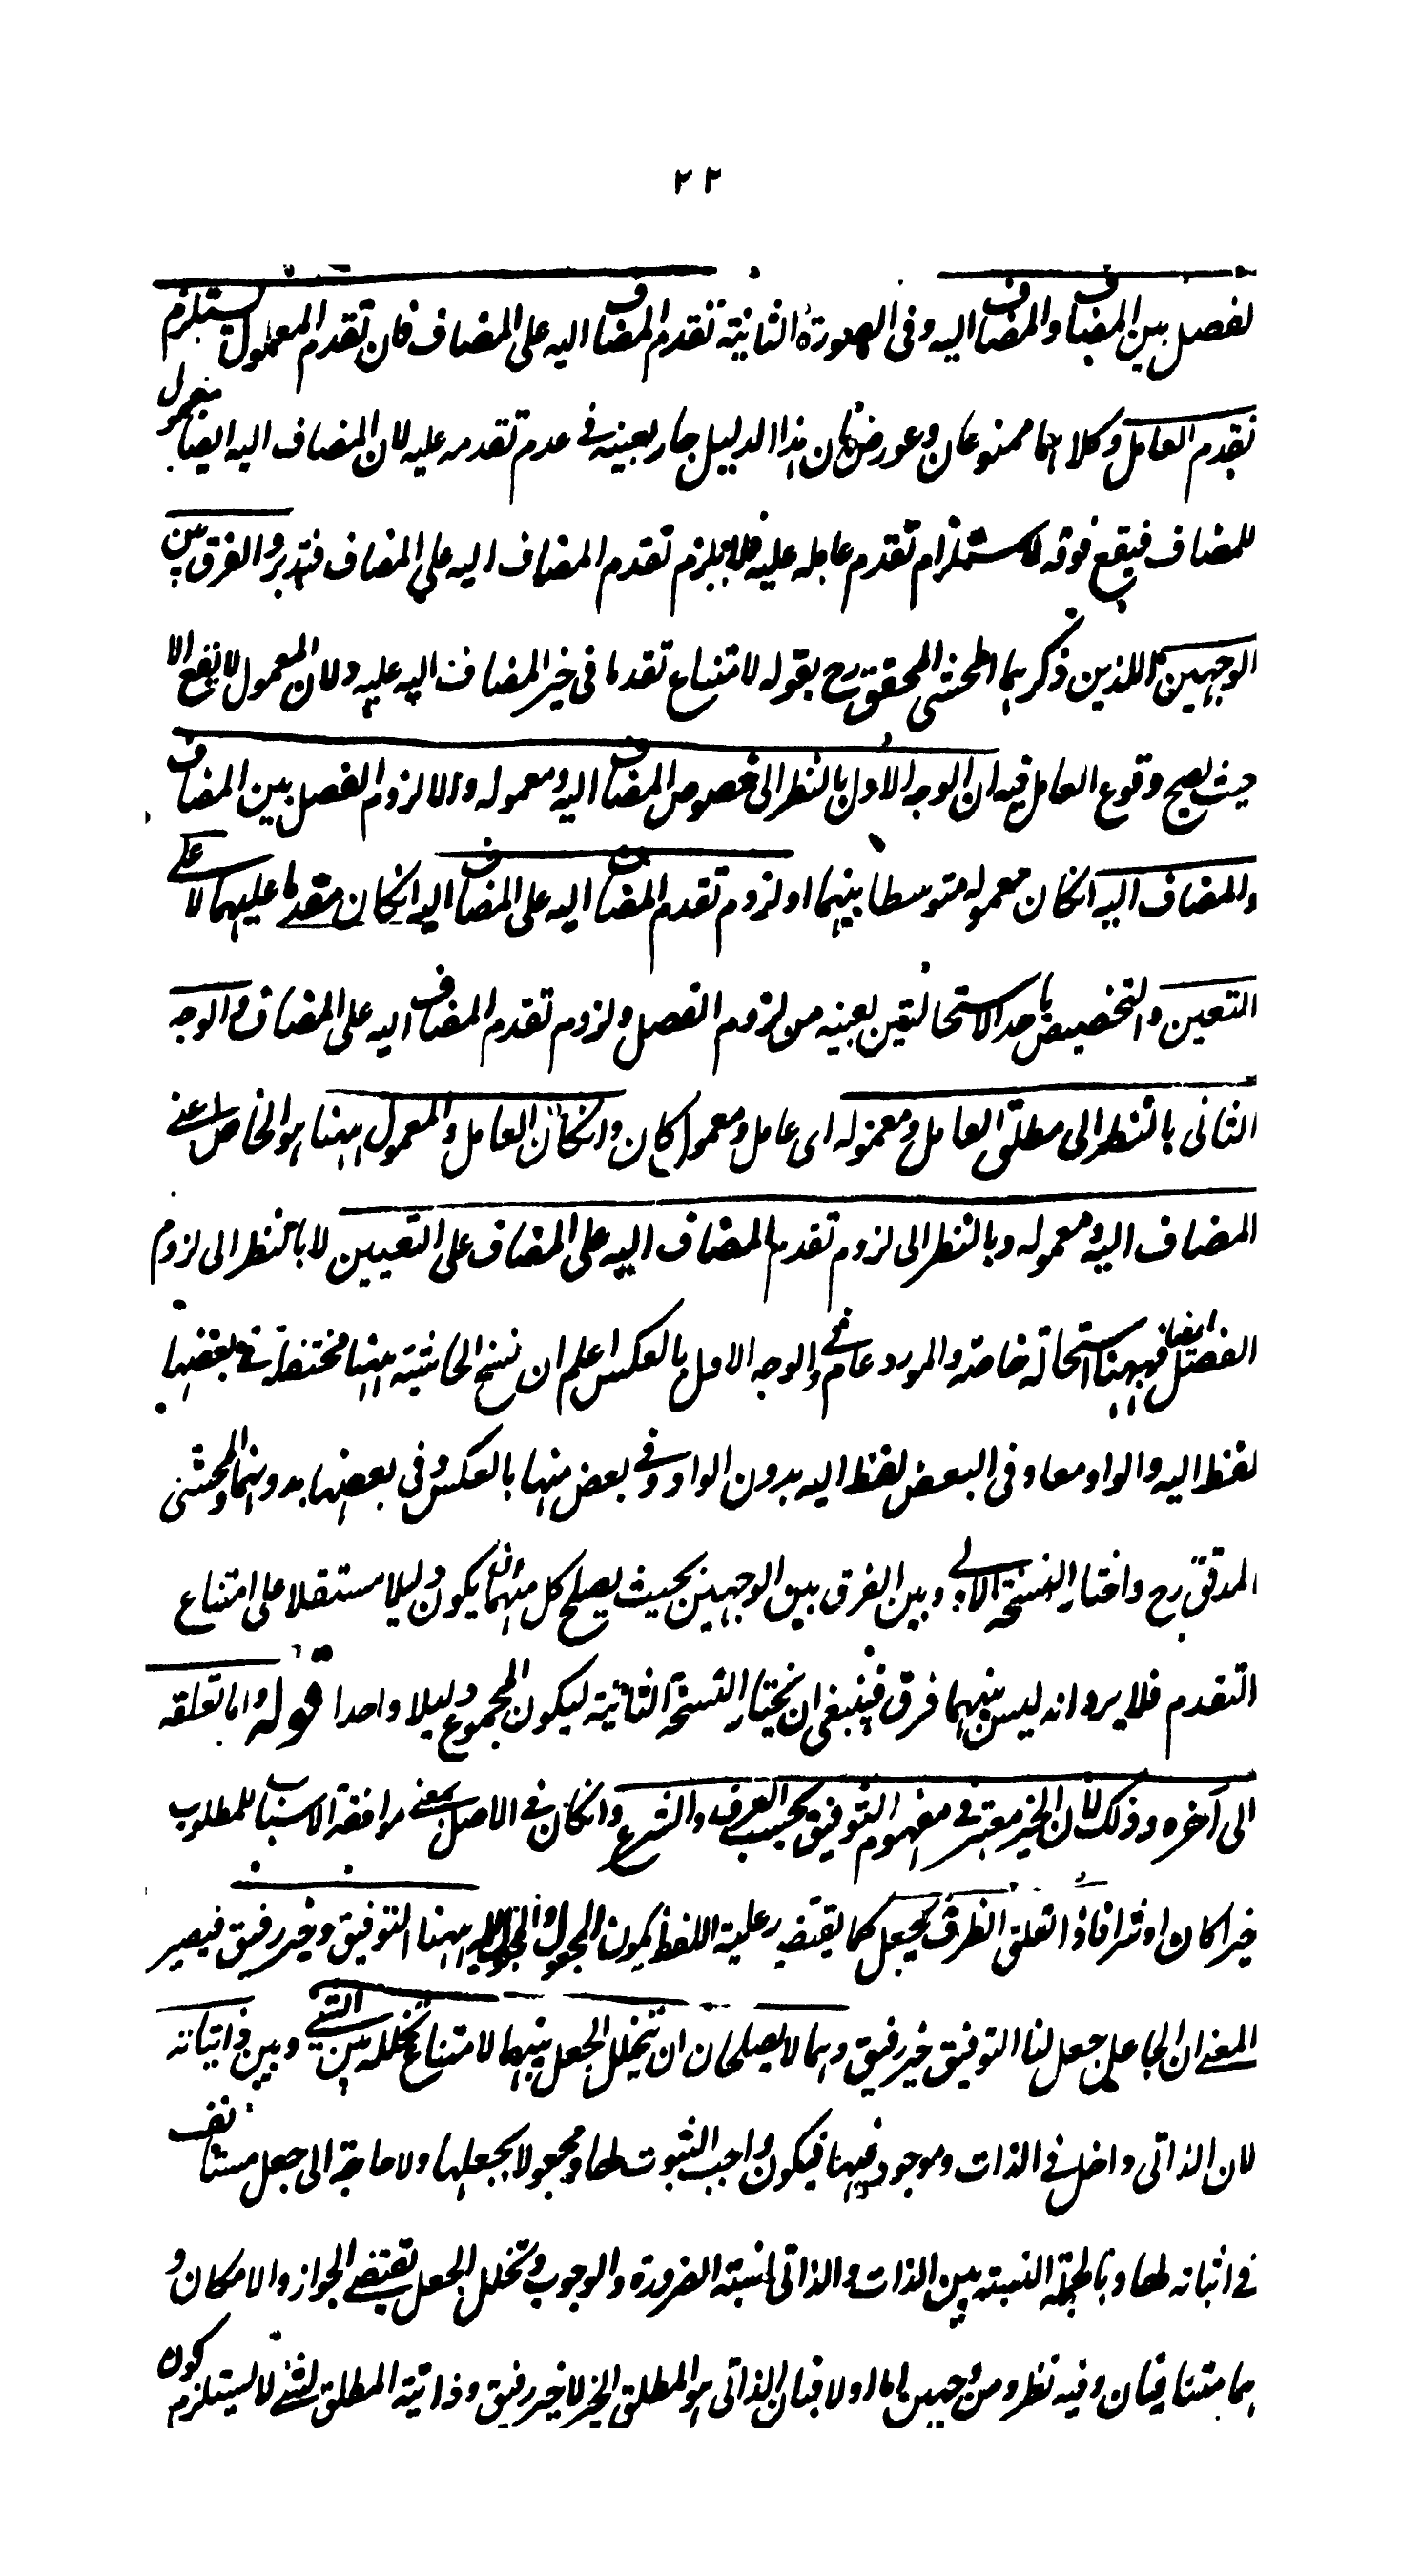 ٢٢
لفصل بين المضاف والمضاف اليه وفى الصورة الثانية تقدم المضاف اليه على المضاف فان تقدم المعمول يستلزم
تقدم العامل وكلاهما ممنوعان وعورض بان هذا الدليل جار بعينه فى عدم تقدمه عليه لان المضاف اليه ايضا معمول
للمضاف فيقع فوقه لاستلزام تقدم عامله عليه فلا يلزم تقدم المضاف اليه على المضاف فتدبر والفرق بين
الوجهين اللذين ذكرهما المحشى المحقق رح بقوله لامتناع تقدما فى خير المضاف اليه عليه ولان المعمول لا يقع الا
حيث يصح وقوع العامل فيه ان الوجه الاول بالنظر الى خصوص المضاف اليه ومعموله والا لزوم الفصل بين المضاف
والمضاف اليه انكان معموله متوسطا بينهما او لزوم تقدم المضاف اليه على المضاف اليه انكان مقدما عليهما لا على
التعين والتخصيص باحد الاستحالتين بعينه من لزوم الفصل ولزوم تقدم المضاف اليه على المضاف والوجه
الثانى بالنظر الى مطلق العامل ومعموله اى عامل ومعمول كان وانكان العامل والمعمول ههنا هو الخاص اعنى
المضاف اليه ومعموله وبالنظر الى لزوم تقدم المضاف اليه على المضاف على التعيين لا بالنظر الى لزوم
الفصل ايضا فههنا استحالة خاصة والمورد عام وفى الوجه الاول بالعكس اعلم ان نسخ الحاشية ههنا مختلفة فى بعضها
لفظ اليه والواو معا وفى البعض لفظ اليه بدون الواو وفى بعض منها بالعكس وفى بعضها بدونهما والمحشى
المدقق رح واختار النسخة الاولى وبين الفرق بين الوجهين بحيث يصلح كل منهما ان يكون دليلا مستقلا على امتناع
التقدم فلا يرد انه ليس بينهما فرق فينبغى ان يختار النسخة الثانية ليكون المجموع دليلا واحدا قوله واما تعلقه
الى آخره وذلك لان الخير معتبر فى مفهوم التوفيق بحسب العرف والشرع وانكان فى الاصل بمعنى موافقة الاسباب للمطلوب
خيرا كان او شرا فاذا تعلق الظرف بجعل كما يقتضيه رعلية اللفظ يكون المجعول والمجعول اليه ههنا التوفيق وخير رفيق فيصير
المعنى ان الجاعل جعل لنا التوفيق خير رفيق وهما لا يصلحان ان يتخلل الجعل بينهما لامتناع تخلله بين الشئ وبين ذاتياته
لان الذاتى داخل فى الذات وموجود فيها فيكون واجب الثبوت لها ومجعولا بجعلها ولا حاجة الى جعل مستأنف
فى اثباته لها وبالجملة النسبة بين الذات والذاتى نسبة الضرورة والوجوب وتخلل الجعل يقتضى الجواز والامكان و
هما متنافيان وفيه نظر ومن وجهين اما اولا فبان الذاتى هو المطلق الخير لا خير رفيق وذاتية المطلق لشئ لا يستلزم كون